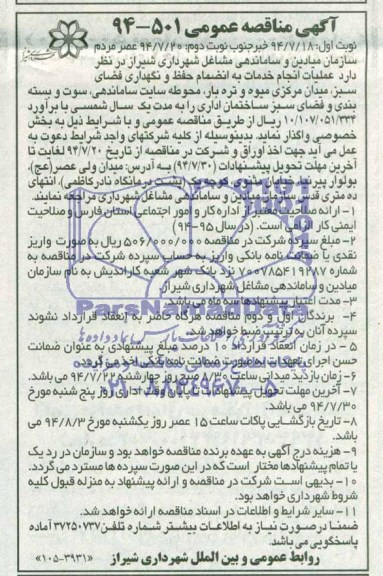 آگهی مناقصه عمومی ۵۰۱-۹۴
نوبت اول: ۹۴/۷/۱۸ خبرجنوب نوبت دوم: ۹۴/۷/۲۰ عصر مردم
سازمان میادین و ساماندهی مشاغل شهرداری شیراز در نظر
دارد عملیات انجام خدمات به انضمام حفظ و نگهداری فضای
سبز، میدان مرکزی میوه و تره بار، محوطه سایت ساماندهی، سوت و بسته
بندی و فضای سبز ساختمان اداری را به مدت یک سال شمسی با برآورد
۱۰/۱۰۷/۰۵۱/۳۳۴ ریال از طریق مناقصه عمومی و با شرایط ذیل به بخش
خصوصی واگذار نماید. بدینوسیله از کلیه شرکتهای واجد شرایط دعوت به
عمل می آید جهت اخذ اوراق و شرکت در مناقصه از تاریخ ۹۴/۷/۲۰ لغایت تا
آخرین مهلت تحویل پیشنهادات (۹۴/۷/۳۰) به آدرس: میدان ولی عصر(عج)،
بولوار پیرنیا، خیابان مثنوی کوچه یک (پشت درمانگاه نادر کاظمی)، انتهای
ده متری قدس، سازمان میادین و ساماندهی مشاغل شهرداری مراجعه نمایند.
۱- ارائه صلاحیت معتبر از اداره کار و امور اجتماعی استان فارس و صلاحیت
ایمنی کار الزامی است. (در سال ۹۵-۹۴)
۲- مبلغ سپرده شرکت در مناقصه ۵۰۶/۰۰۰/۰۰۰ ریال به صورت واریز
نقدی یا ضمانت نامه بانکی واریز به حساب سپرده شرکت در مناقصه به
شماره ۷۰۰۷۸۵۴۱۹۲۸۷ نزد بانک شهر شعبه کاراندیش به نام سازمان
میادین و ساماندهی مشاغل شهرداری شیراز.
۳- مدت اعتبار پیشنهادها سه ماه می باشد.
۴- برندگان اول و دوم مناقصه هرگاه حاضر به انعقاد قرارداد نشوند
سپرده آنان به ترتیب ضبط خواهد شد.
۵- در زمان انعقاد قرارداد ۱۰ درصد مبلغ پیشنهادی به عنوان ضمانت
حسن اجرای تعهدات به صورت ضمانت نامه بانکی اخذ می گردد.
۶- زمان بازدید میدانی ساعت ۸/۳۰ صبح روز چهارشنبه ۹۴/۷/۲۲ می باشد.
۷- آخرین مهلت تحویل پیشنهادات تا پایان وقت اداری روز پنج شنبه مورخ
۹۴/۷/۳۰ می باشد.
۸- تاریخ بازگشایی پاکات ساعت ۱۵ عصر روز یکشنبه مورخ ۹۴/۸/۳ می
باشد.
۹- هزینه درج آگهی به عهده برنده مناقصه خواهد بود و سازمان در رد یک
یا تمام پیشنهادها مختار است که در این صورت سپرده ها مسترد می گردد.
۱۰- بدیهی است شرکت در مناقصه و ارائه پیشنهاد به منزله قبول کلیه
شروط شهرداری خواهد بود.
۱۱- سایر شرایط و اطلاعات در اسناد مناقصه ارائه خواهد شد.
ضمناً در صورت نیاز به اطلاعات بیشتر شماره تلفن ۳۷۲۵۰۷۳۷ آماده
پاسخگویی می باشد.
روابط عمومی و بین الملل شهرداری شیراز «۱۰۵-۳۹۳۱»